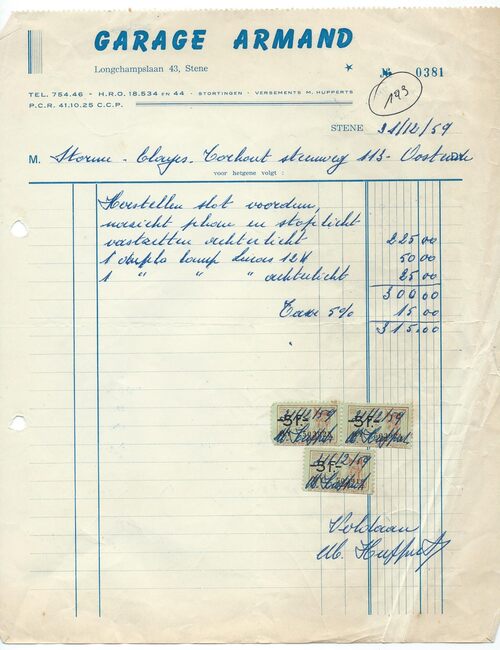 GARAGE ARMAND
Longchampslaan 43, Stene
№ 0381
193
TEL. 754.46 - H.R.O. 18.534 EN 44 - STORTINGEN - VERSEMENTS M. HUPPERTS
P.C.R. 41.10.25 C.C.P.
STENE 31/12/59
M. Storme - Clayes - Torhout steenweg 113 - Oostende
voor hetgene volgt :
Herstellen slot voordeur,
nazicht phare en stoplicht
vastzetten achterlicht 225 00
1 duplo lamp Lucas 12V 50 00
1 " " " achterlicht 25 00
300 00
Taxe 5% 15 00
315.00
31/12/59
5F.-
31/12/59
5F.-
31/12/59
5F.-
Voldaan